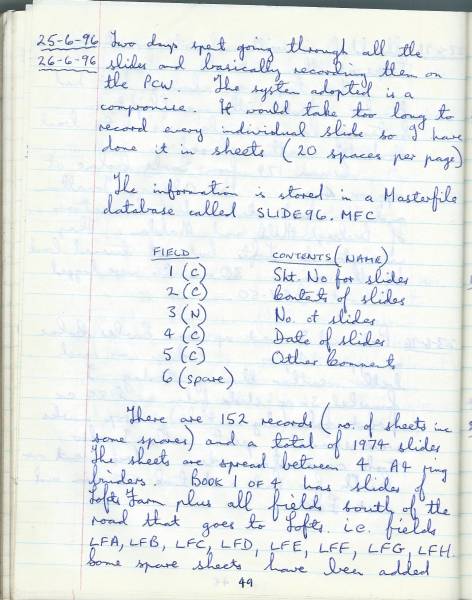 25-6-96 Two days spent going through all the
26-6-96 slides and basically recording them on
the PCW. The system adopted is a
compromise. It would take too long to
record every individual slide so I have
done it in sheets (20 spaces per page)
The information is stored in a Masterfile
database called SLIDE96.MFC
FIELD CONTENTS (NAME)
1 (C) Sht. No for slides
2 (C) Contents of slides
3 (N) No. of slides
4 (C) Date of slides
5 (C) Other Comments
6 (spare)
There are 152 records (no. of sheets inc
some spares) and a total of 1974 slides
The sheets are spread between 4 A4 ring
binders. BOOK 1 OF 4 has slides of
Lofts Farm plus all fields south of the
road that goes to Lofts. i.e. fields
LFA, LFB, LFC, LFD, LFE, LFF, LFG, LFH.
Some spare sheets have been added
49